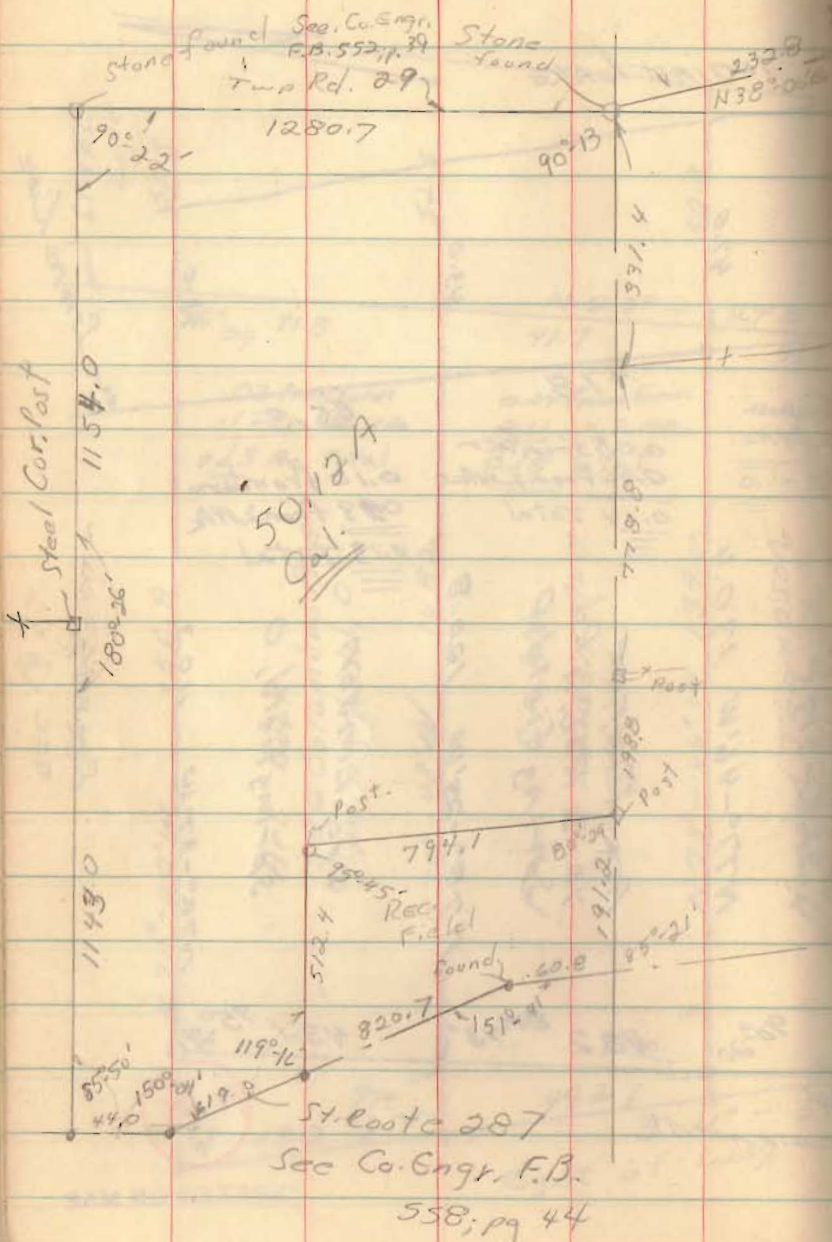 Stone found
See. Co. Engr.
F.B. 552; p. 39
Twp Rd. 29
Stone
found
232.8
N38°-0
90°-22'
1280.7
90°-13
331.4
1154.0
Steel Cor. Post
180°-26'
50.12 A
Cal.
779.8
Post
198.8
Post
Post.
794.1
80°-29
95°-45'
Rec.
Field
191.2
1143.0
512.4
found
60.8
85°-21'
820.7
151°-41'
119°-16
85°-50'
150°-04'
44.0
619.0
St. Route 287
See Co. Engr. F.B.
558; pg 44